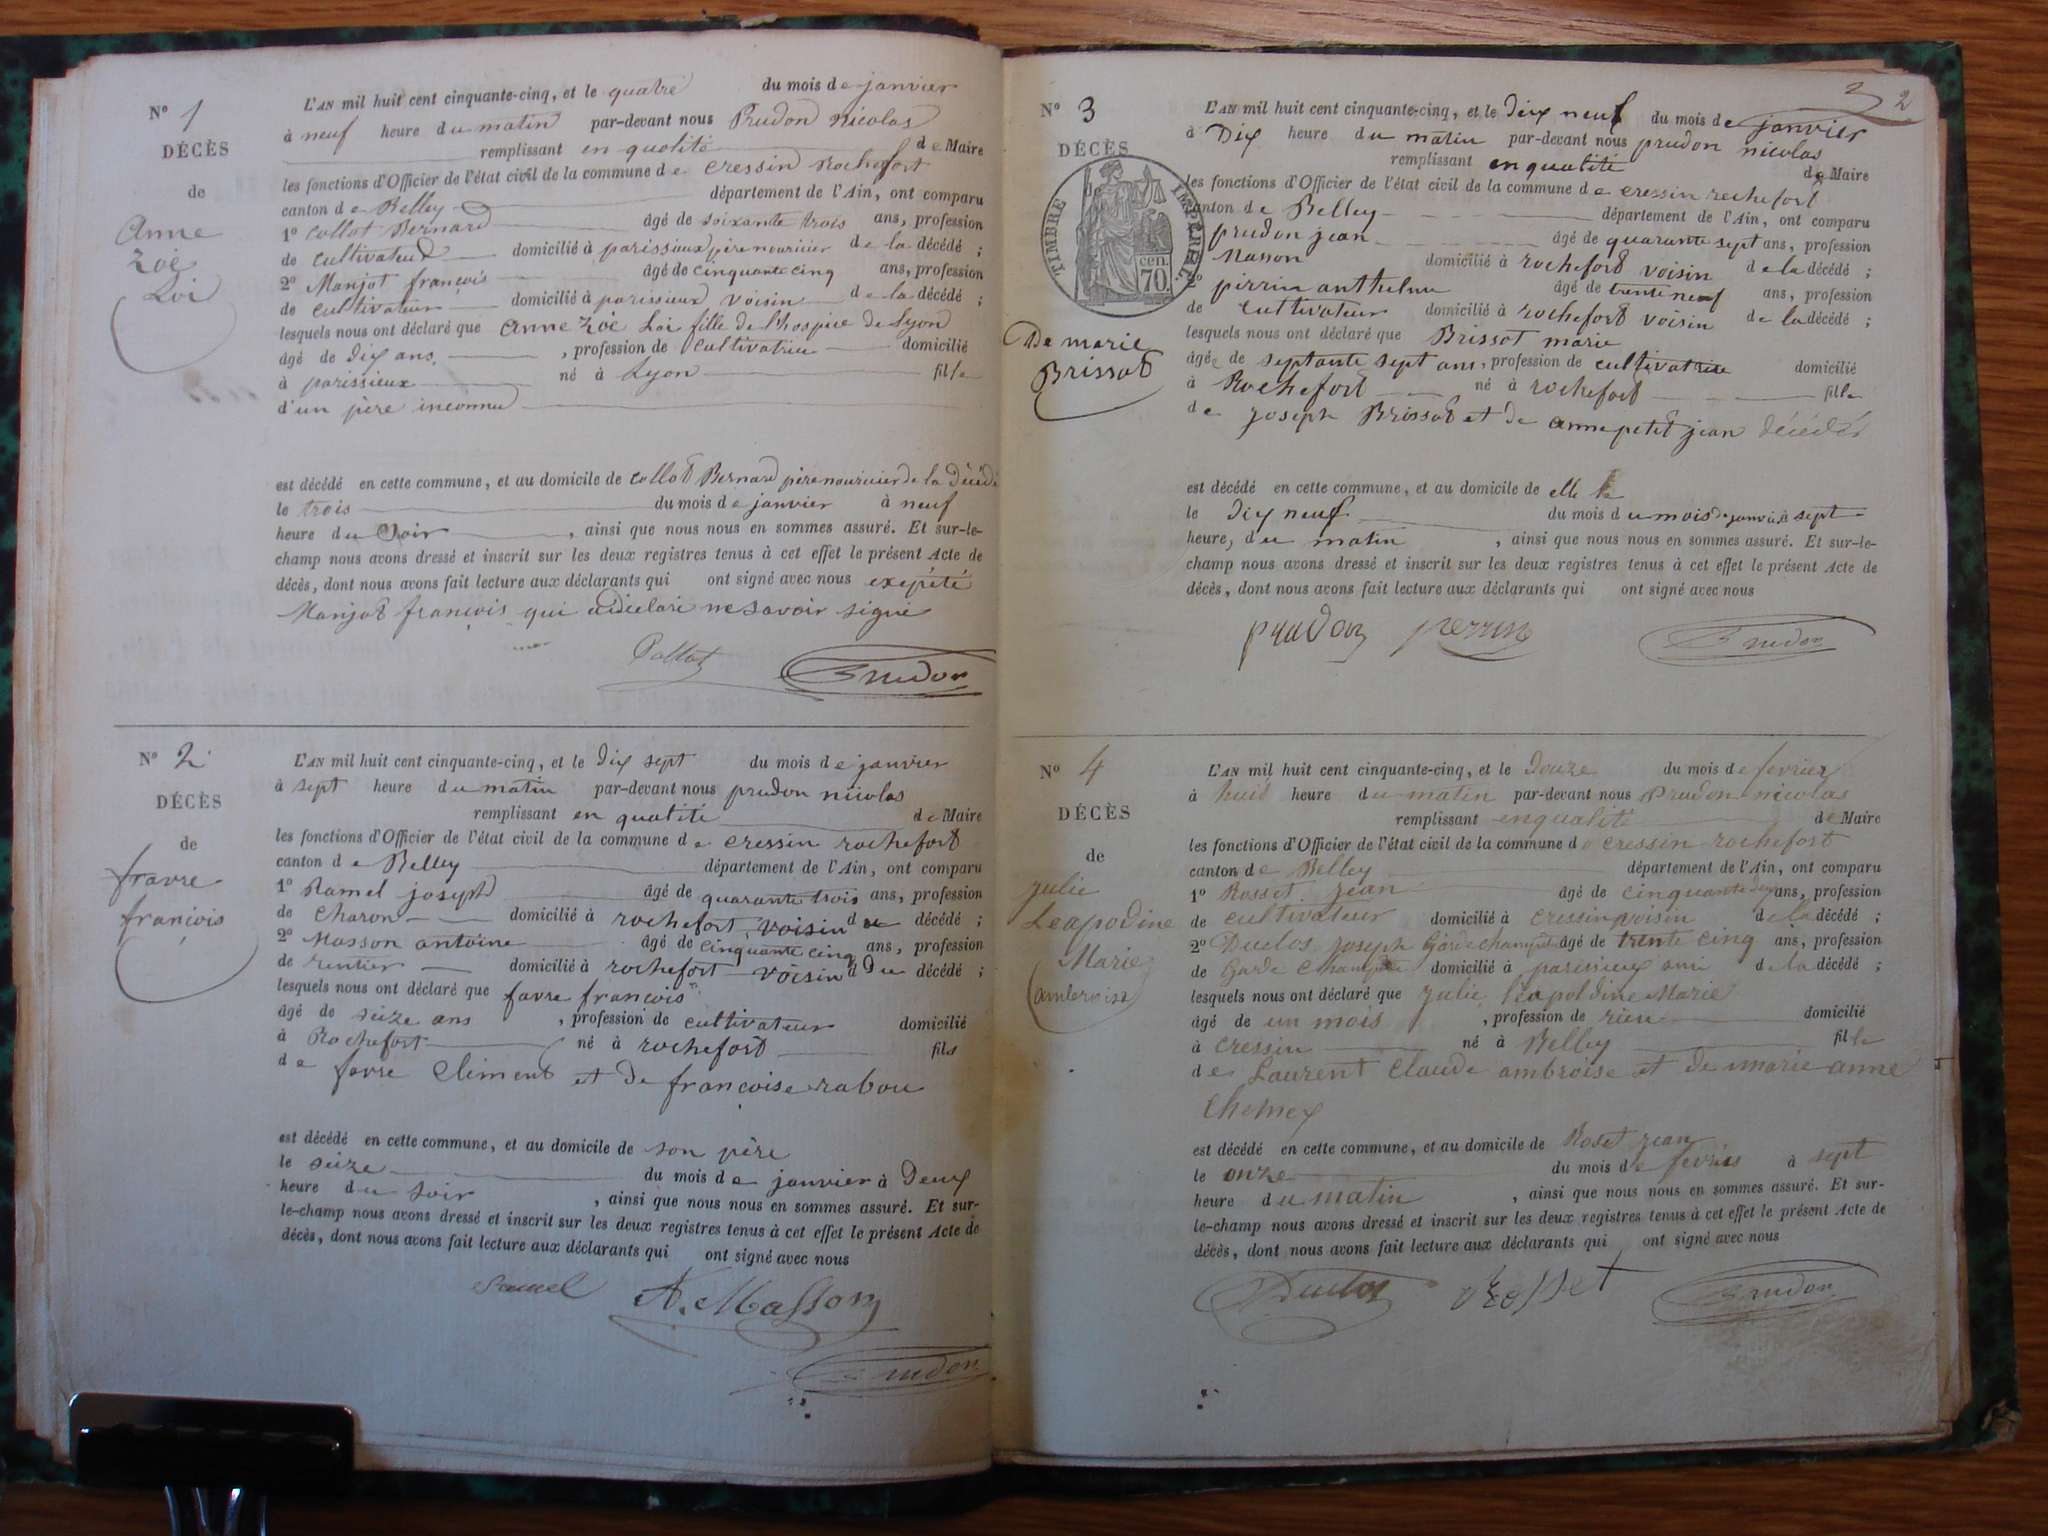 N° 1
DÉCÈS
de
Anne
zoé
Loi
L'AN mil huit cent cinquante-cinq, et le quatre du mois de janvier
à neuf heure du matin par-devant nous Prudon nicolas
remplissant en qualité de Maire
les fonctions d'Officier de l'état civil de la commune de cressin Rochefort
canton de Belley département de l'Ain, ont comparu
1° Collot Bernard âgé de soixante trois ans, profession
de cultivateur domicilié à parissieux père nouricier de la décédé ;
2° Monjot françois âgé de cinquante cinq ans, profession
de cultivateur domicilié à parissieux voisin de la décédé ;
lesquels nous ont déclaré que Anne zoé Loi fille de l'hospice de Lyon
âgé de dix ans , profession de cultivatrice domicilié
à parissieux né à Lyon fille
d'un père inconnu
est décédé en cette commune, et au domicile de collot Bernard père nouricier de la décédé
le trois du mois de janvier à neuf
heure du soir , ainsi que nous nous en sommes assuré. Et sur-le-
champ nous avons dressé et inscrit sur les deux registres tenus à cet effet le présent Acte de
décès, dont nous avons fait lecture aux déclarants qui ont signé avec nous exepété
Monjot françois qui a diclaré ne savoir signé
Collot Prudon
N° 2
DÉCÈS
de
fravre
françois
L'AN mil huit cent cinquante-cinq, et le dix sept du mois de janvier
à sept heure du matin par-devant nous prudon nicolas
remplissant en qualité de Maire
les fonctions d'Officier de l'état civil de la commune de cressin rochefort
canton de Belley département de l'Ain, ont comparu
1° Ramel joseph âgé de quarante trois ans, profession
de charon domicilié à rochefort voisin du décédé ;
2° Masson antoine âgé de cinquante cinq ans, profession
de rentier domicilié à rochefort voisin du décédé ;
lesquels nous ont déclaré que favre françois
âgé de seize ans , profession de cultivateur domicilié
à Rochefort né à rochefort fils
de favre Climent et de françoise rabou
est décédé en cette commune, et au domicile de son père
le seize du mois de janvier à Deux
heure du soir , ainsi que nous nous en sommes assuré. Et sur-
le-champ nous avons dressé et inscrit sur les deux registres tenus à cet effet le présent Acte de
décès, dont nous avons fait lecture aux déclarants qui ont signé avec nous
Ramel A. Masson
Prudon
2
N° 3
DÉCÈS
TIMBRE IMPÉRIAL
70 cen.
De marie
Brissot
L'AN mil huit cent cinquante-cinq, et le dix neuf du mois de janvier
à Dix heure du matin par-devant nous prudon nicolas
remplissant en qualité de Maire
les fonctions d'Officier de l'état civil de la commune de cressin rochefort
canton de Belley département de l'Ain, ont comparu
prudon jean âgé de quarante sept ans, profession
Masson domicilié à rochefort voisin de la décédé ;
2° pirrin anthelme âgé de trente neuf ans, profession
de cultivateur domicilié à rochefort voisin de la décédé ;
lesquels nous ont déclaré que Brissot marie
âgée de septante sept ans, profession de cultivatrice domicilié
à Rochefort né à rochefort fille
de joseph Brissot et de anne petit jean décédés
est décédé en cette commune, et au domicile de elle
le dix neuf du mois du mois de janvier à sept
heure, du matin , ainsi que nous nous en sommes assuré. Et sur-le-
champ nous avons dressé et inscrit sur les deux registres tenus à cet effet le présent Acte de
décès, dont nous avons fait lecture aux déclarants qui ont signé avec nous
prudon perrin Prudon
N° 4
DÉCÈS
de
julie
Leapodine
Marie
(ambroise)
L'AN mil huit cent cinquante-cinq, et le Douze du mois de fevrier
à huit heure du matin par-devant nous Prudon nicolas
remplissant en qualité de Maire
les fonctions d'Officier de l'état civil de la commune de cressin rochefort
canton de Belley département de l'Ain, ont comparu
1° Rosset jean âgé de cinquante deux ans, profession
de cultivateur domicilié à cressin voisin de la décédé ;
2° Duclos joseph Garde champêtre âgé de trente cinq ans, profession
de Garde champêtre domicilié à parissieux ami de la décédé ;
lesquels nous ont déclaré que julie léapoldine Marie
âgé de un mois , profession de rien domicilié
à cressin né à Belley fille
de Laurent Claude ambroise et de marie anne
est décédé en cette commune, et au domicile de Roset jean
le onze du mois de fevrier à sept
heure du matin , ainsi que nous nous en sommes assuré. Et sur-
le-champ nous avons dressé et inscrit sur les deux registres tenus à cet effet le présent Acte de
décès, dont nous avons fait lecture aux déclarants qui ont signé avec nous
Duclos Rosset Prudon